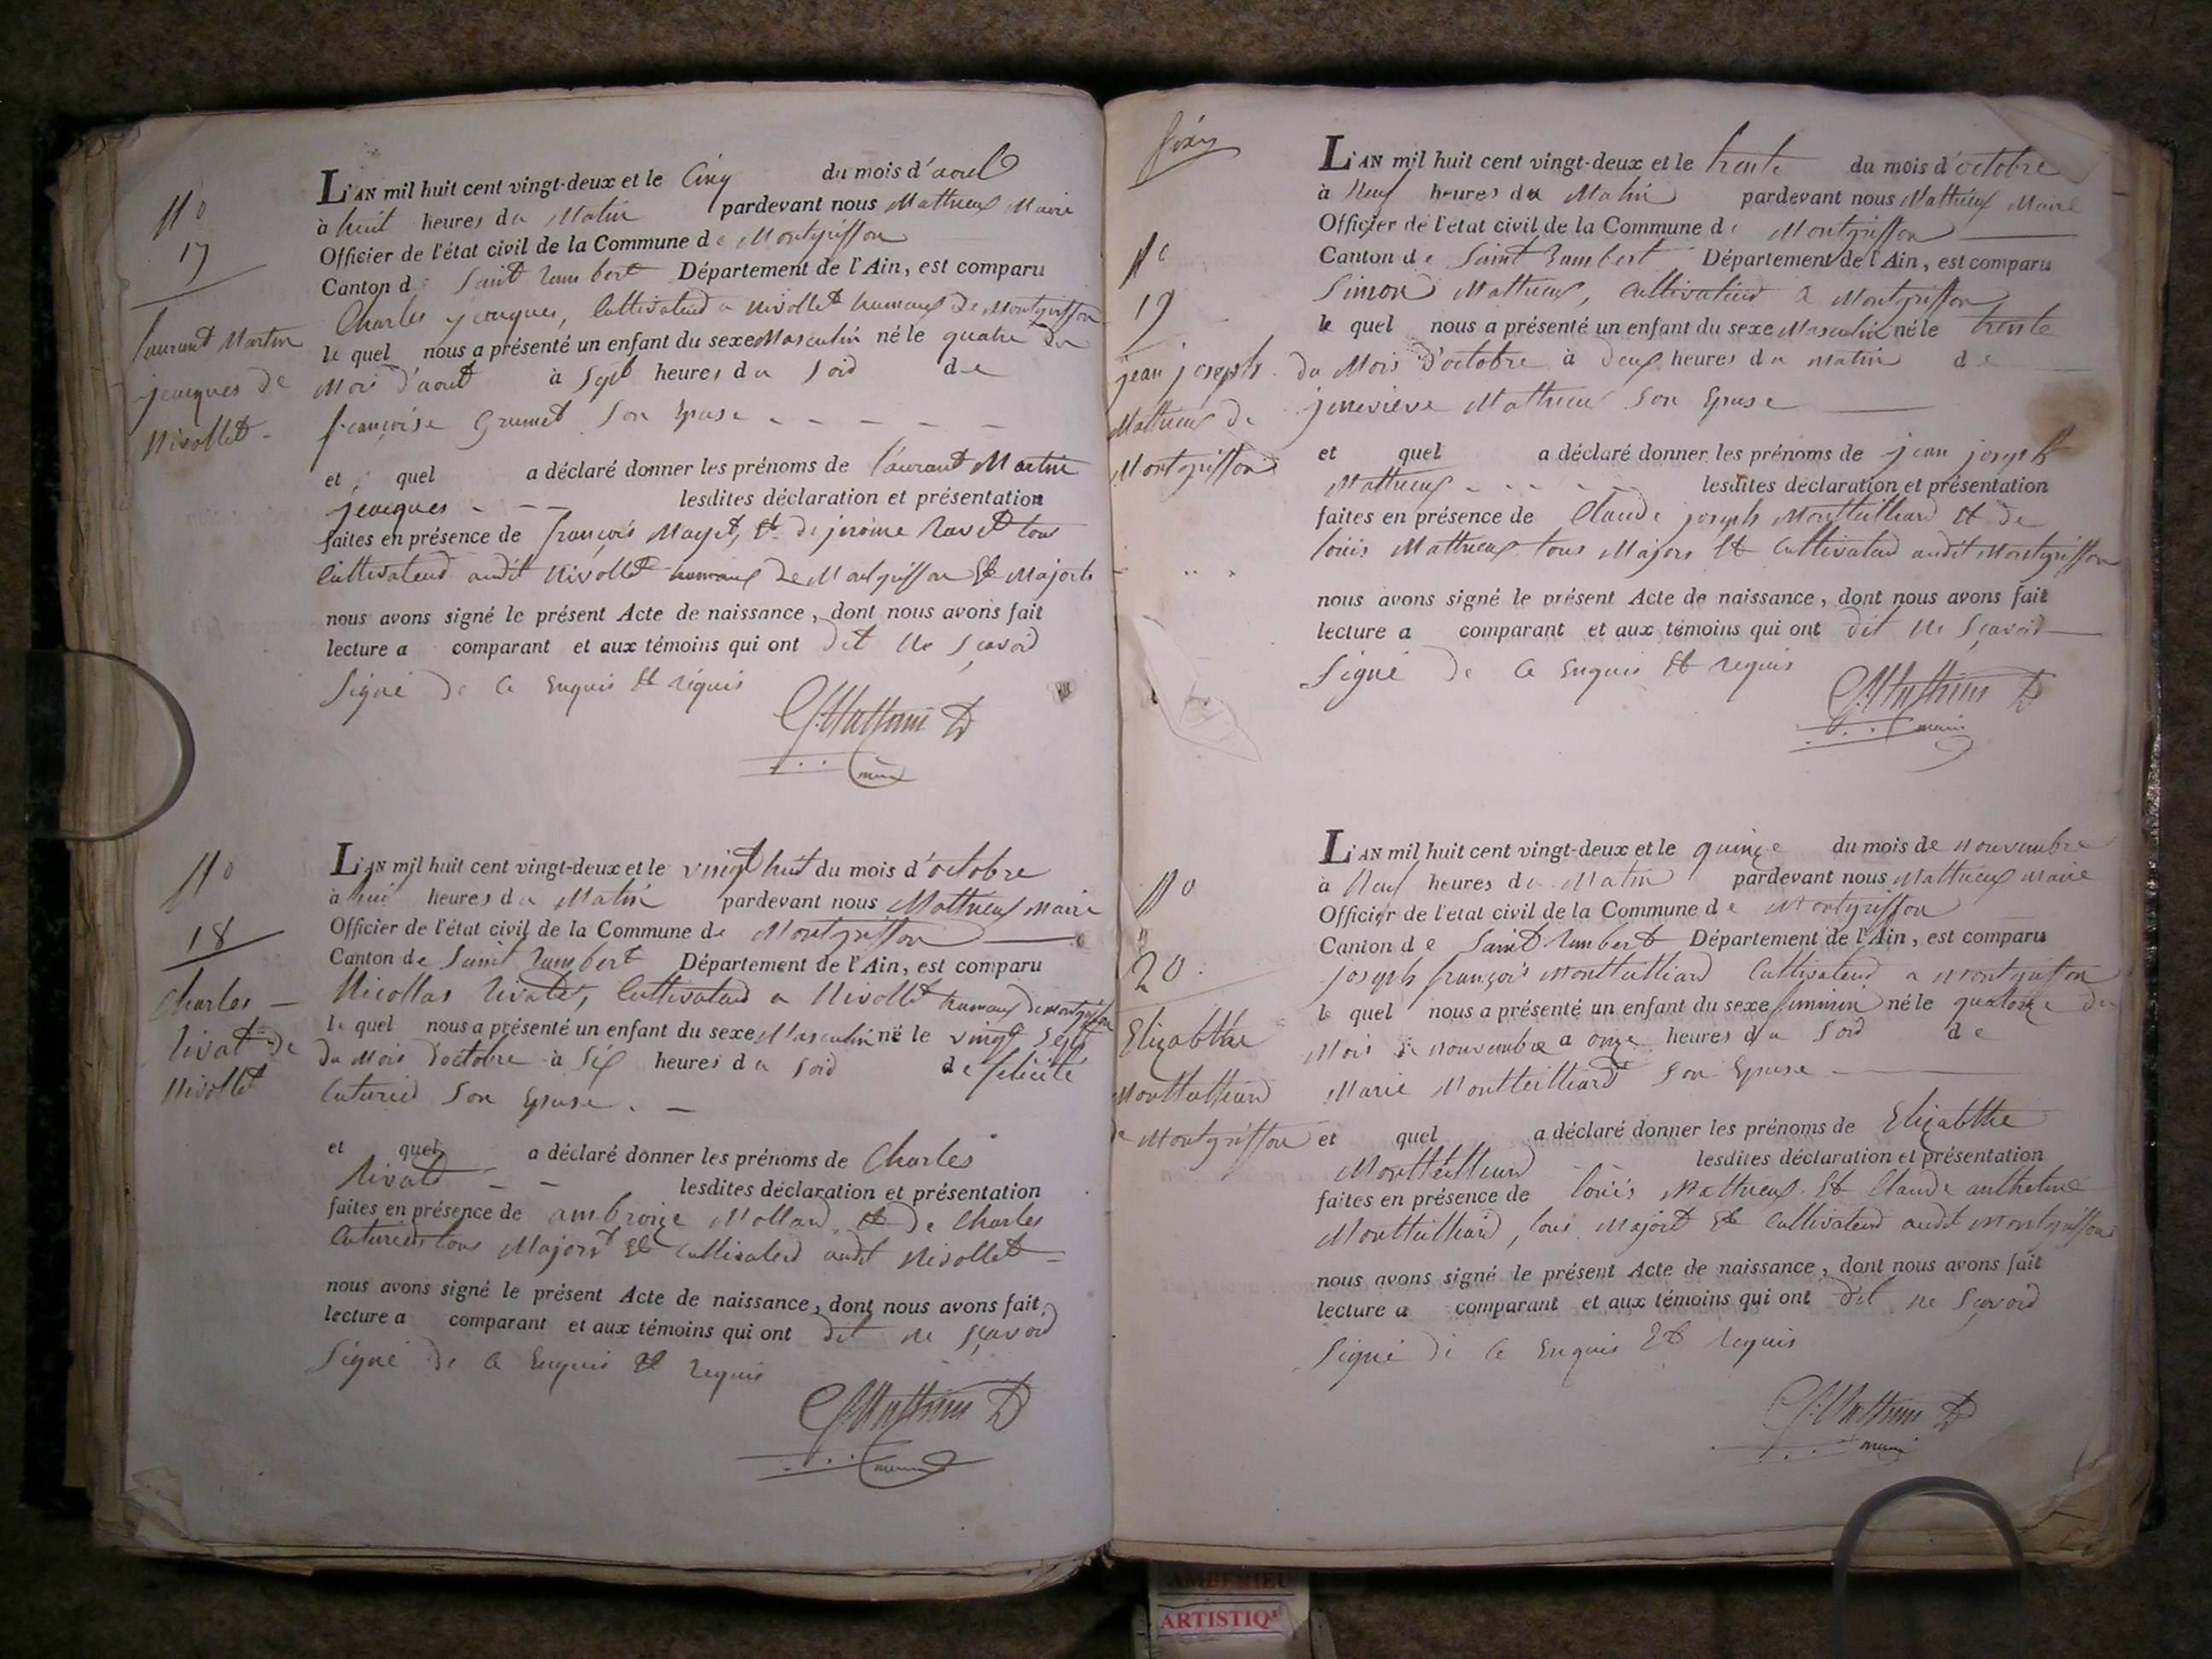 N°
17
laurand Martin
jeacques de
Nivollet -
L'AN mil huit cent vingt-deux et le Cinq du mois d'aout
à huit heures du Matin pardevant nous Mathieux Maire
Officier de l'état civil de la Commune de Montgriffon
Canton de Saint Rambert Département de l'Ain, est comparu
Charles jeacques, Cultivateur a Nivollet hameaux De Montgriffon
le quel nous a présenté un enfant du sexe Masculin né le quatre du
Mois d'aout à Sept heures du Soir de
françoise Grumet Son Epouse
et quel a déclaré donner les prénoms de laurand Martin
jeacques - - - lesdites déclaration et présentation
faites en présence de françois Mayet, Et de jerôme Ravet tous
Cultivateurs audit Nivollet hameaux de Montgriffon Et Majors
nous avons signé le présent Acte de naissance, dont nous avons fait
lecture a comparant et aux témoins qui ont dit Ne Sçavoir
Signé De Ce Enquis Et requis
Mathieux
maire
N°
18
Charles -
Rivat de
Nivollet
L'AN mil huit cent vingt-deux et le vingt huit du mois d'octobre
à huit heures du Matin pardevant nous Mathieux Maire
Officier de l'état civil de la Commune de Montgriffon
Canton de Saint Rambert Département de l'Ain, est comparu
Nicollas Rivat, Cultivateur a Nivollet hameaux de Montgriffon
le quel nous a présenté un enfant du sexe Masculin né le vingt Sept
du Mois D'octobre à Six heures du Soir de felicité
Cuturier Son Epouse. -
et quel a déclaré donner les prénoms de Charles
Rivat - - lesdites déclaration et présentation
faites en présence de ambroize Mollard Et De Charles
Cuturier tous Majors Et Cultivateur audit Nivollet -
nous avons signé le présent Acte de naissance, dont nous avons fait
lecture a comparant et aux témoins qui ont dit ne Sçavoir
Signé De Ce Enquis Et requis
Mathieux
maire
N°
19
jean joseph
Mathieux de
Montgriffon
L'AN mil huit cent vingt-deux et le trente du mois d'octobre
à Neuf heures du Matin pardevant nous Mathieux Maire
Officier de l'état civil de la Commune de Montgriffon
Canton de Saint Rambert Département de l'Ain, est comparu
Simon Mathieux, Cultivateur a Montgriffon
le quel nous a présenté un enfant du sexe Masculin né le trente
du Mois D'octobre à Deux heures du matin de
jenevieve Mathieux Son Epouse
et quel a déclaré donner les prénoms de jean joseph
Mathieux - - - - lesdites déclaration et présentation
faites en présence de Claude joseph Montteilliard Et de
louis Mathieux tous Majors Et Cultivateur audit Montgriffon
nous avons signé le présent Acte de naissance, dont nous avons fait
lecture a comparant et aux témoins qui ont dit Ne Sçavoir
Signé De Ce Enquis Et requis
Mathieux
maire
N°
20
Elizabthe
Montteilliard
de Montgriffon
L'AN mil huit cent vingt-deux et le quinze du mois de Nouvembre
à Neuf heures du Matin pardevant nous Mathieux maire
Officier de l'état civil de la Commune de Montgriffon
Canton de Saint Rambert Département de l'Ain, est comparu
joseph françois Montteilliard Cultivateur a Montgriffon
le quel nous a présenté un enfant du sexe feminin né le quatorze du
Mois de Nouvembre a onze heures du Soir de
Marie Montteilliard Son Epouse
et quel a déclaré donner les prénoms de Elizabthe
Montteilliard lesdites déclaration et présentation
faites en présence de louis Mathieux Et Claude anthelme
Montteilliard, tous Majors Et Cultivateur audit Montgriffon
nous avons signé le présent Acte de naissance, dont nous avons fait
lecture a comparant et aux témoins qui ont dit ne Sçavoir
Signé De Ce Enquis Et Requis
Mathieux
maire
AMBERIEU
ARTISTIQ